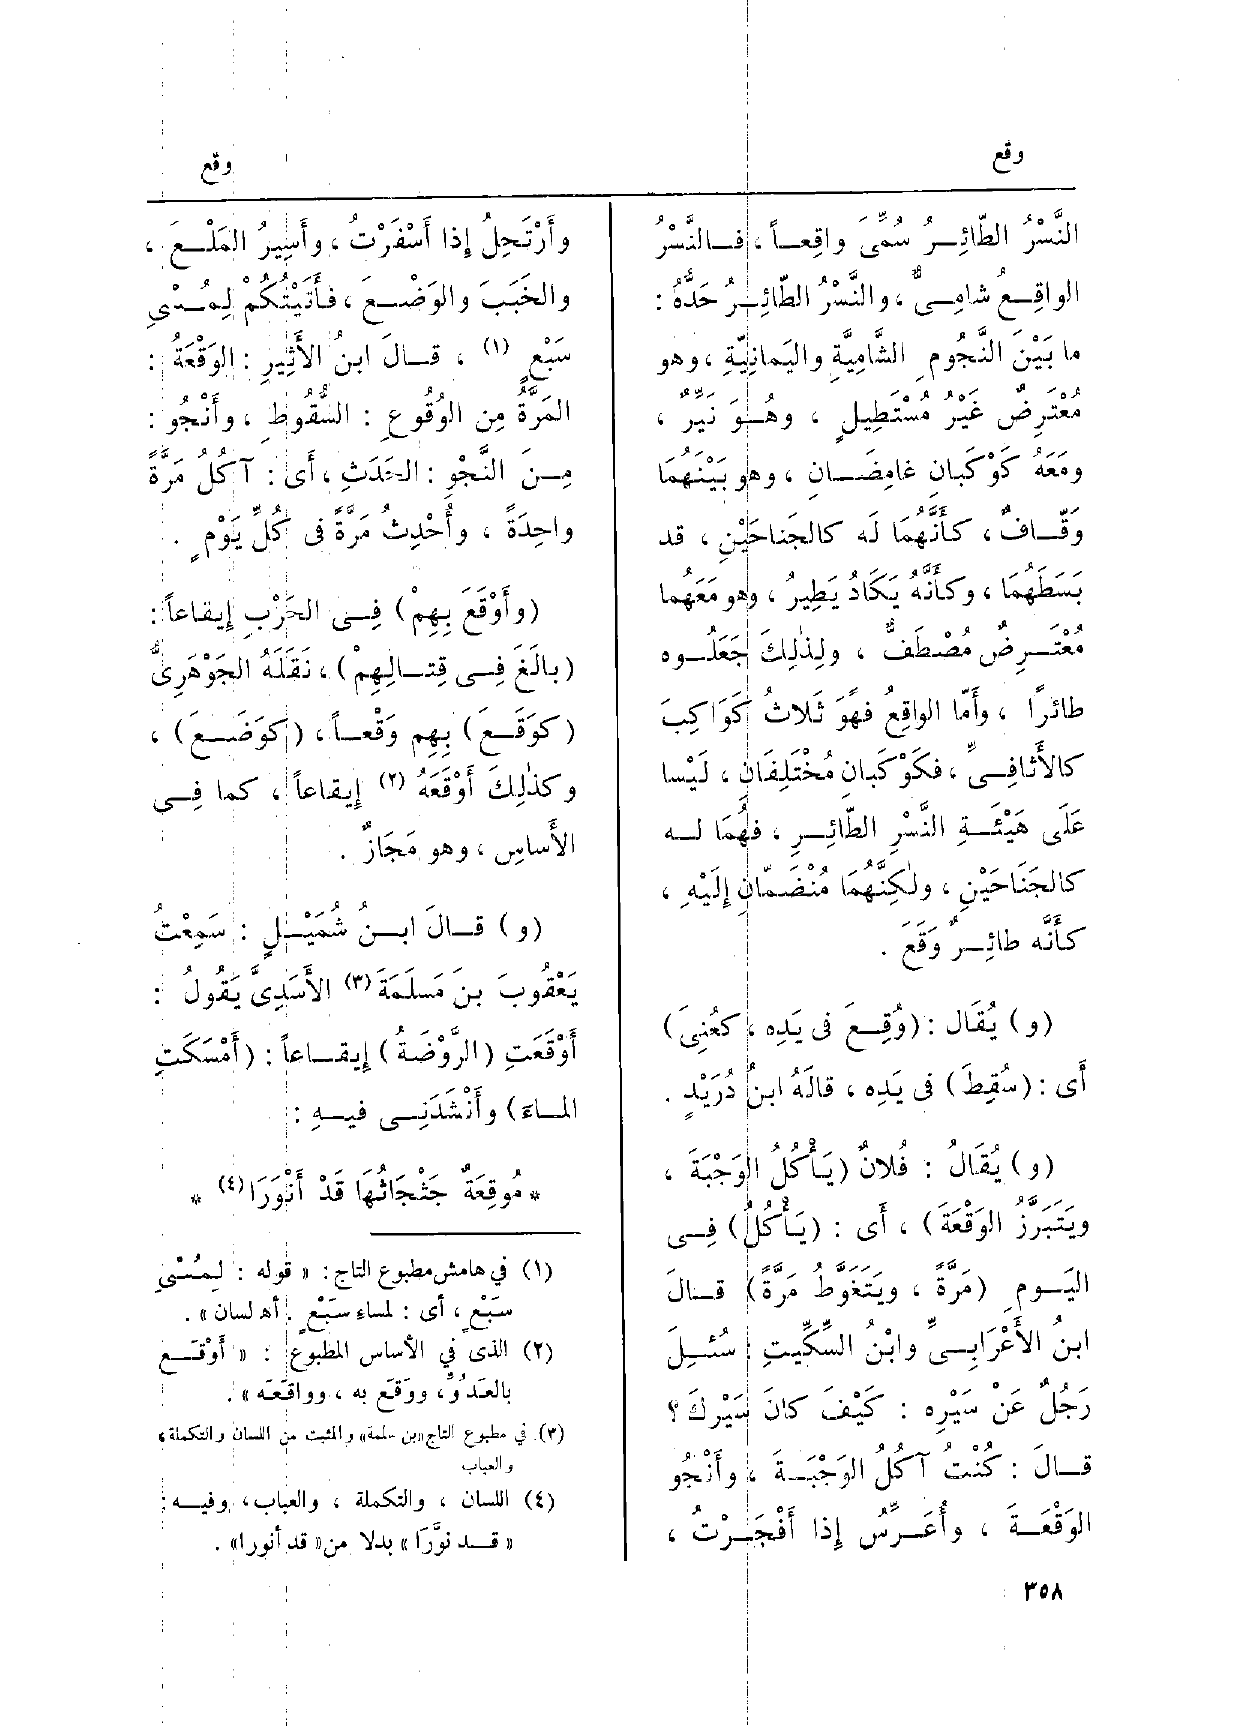 وقع
وقع
النَّسْرُ الطّائِـرُ سُمِّىَ واقِعـاً ، فـالنَّسْرُ
الواقِـعُ شامِـىٌّ ، والنَّسْرُ الطّائِـرُ حَدُّهُ :
ما بَيْنَ النُّجومِ الشَّامِيَّةِ واليَمانِيّةِ ، وهو
مُعْتَرِضٌ غَيْرُ مُسْتَطِيلٍ ، وهُـوَ نَيِّرٌ ،
ومَعَهُ كَوْكَبانِ غامِضـانِ ، وهو بَيْنَهُمَا
وَقّـافٌ ، كـأَنَّهُمَا لَه كالجَناحَيْنِ ، قد
بَسَطَهُمَا ، وكـأَنَّهُ يَكَادُ يَطِيرُ ، وهو مَعَهُما
مُعْتَـرِضٌ مُصْطَفٌّ ، ولِذٰلِكَ جَعَلُـوه
طائرًا ، وأَمّا الواقِعُ فهُوَ ثَلاثُ كَوَاكِبَ
كالأَثافِـىِّ ، فكَوْكَبانِ مُخْتَلِفَانِ ، لَيْسا
عَلَى هَيْئَـةِ النَّسْرِ الطّائِـرِ ، فهُمَا لـه
كالجَنَاحَيْنِ ، ولٰكِنَّهُمَا مُنْضَمّانِ إِلَيْهِ ،
كـأَنَّه طائِـرٌ وَقَعَ .
(و) يُقَال : (وُقِـعَ فى يَدِه ، كعُنِىَ)
أَى : (سُقِطَ) فى يَدِه ، قالَهُ ابنُ دُرَيْدٍ .
(و) يُقَالُ : فُلانٌ (يَـأْكُلُ الوَجْبَةَ ،
ويَتَبَرَّزُ الوَقْعَةَ) ، أَى : (يَـأْكُلُ) فِـى
اليَـومِ (مَرَّةً ، ويَتَغَوَّطُ مَرَّةً) قـالَ
ابنُ الأَعْرَابِـىِّ وابْنُ السِّكِّيتِ : سُئِـلَ
رَجُلٌ عَنْ سَيْرِه : كَيْفَ كانَ سَيْرُكَ ؟
قـالَ : كُنْتُ آكُلُ الوَجْبَـةَ ، وأَنْجُو
الوَقْعَـةَ ، وأُعَـرِّسُ إِذا أَفْجَـرْتُ ،
وأَرْتَحِلُ إِذا أَسْفَرْتُ ، وأَسِيرُ المَلْـعَ ،
والخَبَبَ والوَضْـعَ ، فـأَتَيْتُكُمْ لِمُسْـىِ
سَبْعٍ (١) ، قـالَ ابنُ الأَثِيرِ : الوَقْعَةُ :
المَرَّةُ مِن الوُقُوعِ : السُّقُوطِ ، وأَنْجُو :
مِـنَ النَّجْوِ : الحَدَثِ ، أَى : آكُلُ مَرَّةً
واحِدَةً ، وأُحْدِثُ مَرَّةً فى كُلِّ يَوْمٍ .
(وأَوْقَعَ بِهِمْ) فِـى الحَرْبِ إِيقاعاً :
(بالَغَ فِـى قِتـالِهِمْ) ، نَقَلَهُ الجَوْهَرِىُّ
(كوَقَـعَ) بِهِم وَقْعـاً ، (كوَضَـعَ) ،
وكذٰلِكَ أَوْقَعَهُ (٢) إِيقاعاً ، كما فِـى
الأَساسِ ، وهو مَجَازٌ .
(و) قـالَ ابـنُ شُمَيْـلٍ : سَمِعْتُ
يَعْقُوبَ بنَ مَسلَمَةَ (٣) الأَسَدِىَّ يَقُولُ :
أَوْقَعَتِ (الرَّوْضَةُ) إِيقـاعاً : (أَمْسَكَتِ
المـاءَ) وأَنْشَدَنِـى فيـهِ :
* مُوقِعَةٌ جَثْجَاثُها قَدْ أَنْوَرَا (٤) *
(١) في هامش مطبوع التاج : « قوله : لِمُسْـىِ
سَبْعٍ ، أى : لمساء سَبْعٍ . أهـ لسان » .
(٢) الذى في الأساس المطبوع : « أَوْقَـع
بالعَدُوِّ ، ووَقَع به ، وواقَعَه » .
(٣) في مطبوع التاج «بن سلمة» والمثبت من اللسان والتكملة ،
والعباب
(٤) اللسان ، والتكملة ، والعباب ، وفيـه :
« قـد نوَّرَا » بدلا من « قد أنورا» .
٣٥٨